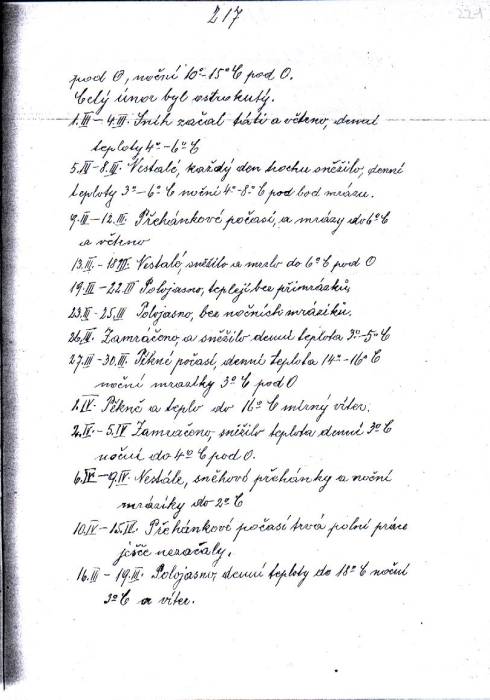 217
221
pod 0, noční 10°-15°C pod 0.
Celý únor byl ostrokutý.
1.III-4.III. Sníh začal táti a větrno, denní
teploty 4°-6°C
5.III-8.III. Nestalé, každý den trochu sněžilo, denní
teploty 3°-6°C noční 4°-8°C pod bod mrazu.
9.III-12.III Přehánkové počasí, a mrazy do 6°C
a větrno
13.III.-18.III. Nestalé, sněžilo a mrzlo do 6°C pod 0
19.III-22.III Polojasno, teplejí bez přímrazků,
23.III-25.III Polojasno, bez nočních mrazíku.
26.III. Zamráčono, a sněžilo denní teplota 3°-5°C
27.III-30.III. Pěkné počasí, denní teplota 14°-16°C
noční mrazíky 3°C pod 0
1.IV. Pěkně a teplo do 16°C mírný víter.
2.IV.-5.IV Zamračono, sněžilo teplota denní 3°C
noční do 4°C pod 0.
6.IV-9.IV. Nestále, sněhové přehánky a noční
mrazíky do 2°C
10.IV-15.IV. Přehánkové počasí trvá polní práce
ješče nezačaly.
16.III-19.III. Polojasno, denní teploty do 18°C noční
3°C a víter.